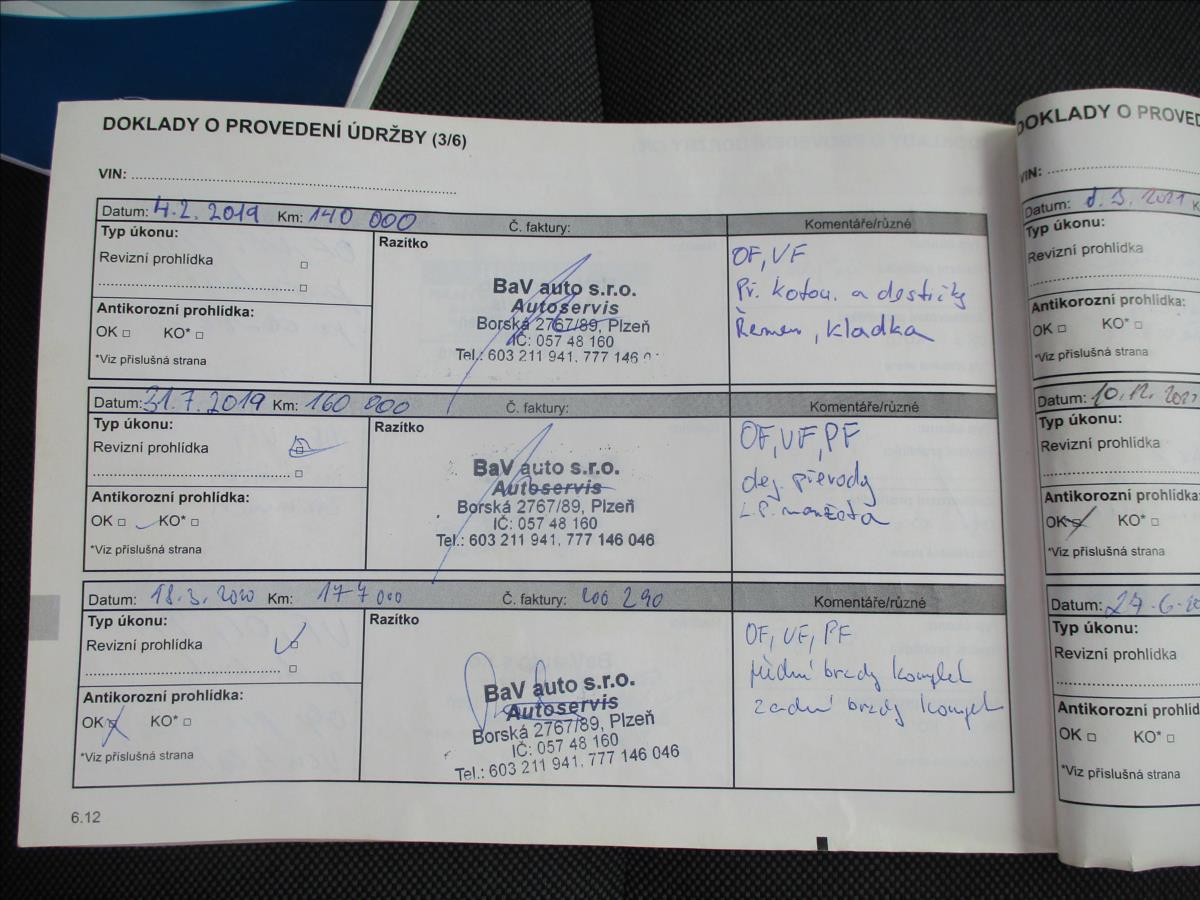 DOKLADY O PROVEDENÍ ÚDRŽBY (3/6)
VIN:
Datum: 4.2.2019 Km: 140 000 Č. faktury: Komentáře/různé
Typ úkonu:
Revizní prohlídka
Antikorozní prohlídka:
OK KO*
*Viz příslušná strana
Razítko
BaV auto s.r.o.
Autoservis
Borská 2767/89, Plzeň
IČ: 057 48 160
Tel.: 603 211 941, 777 146 0
OF, VF
Př. kotou. a destičky
Řemen, kladka
Datum: 31.7.2019 Km: 160 000 Č. faktury: Komentáře/různé
Typ úkonu:
Revizní prohlídka
Antikorozní prohlídka:
OK KO*
*Viz příslušná strana
Razítko
BaV auto s.r.o.
Autoservis
Borská 2767/89, Plzeň
IČ: 057 48 160
Tel.: 603 211 941, 777 146 046
OF, VF, PF
převody
L.P. manžeta
Datum: 18.3.2020 Km: 177 000 Č. faktury: 200 290 Komentáře/různé
Typ úkonu:
Revizní prohlídka
Antikorozní prohlídka:
OK KO*
*Viz příslušná strana
Razítko
BaV auto s.r.o.
Autoservis
Borská 2767/89, Plzeň
IČ: 057 48 160
Tel.: 603 211 941, 777 146 046
OF, VF, PF
přední brzdy komplet
zadní brzdy komplet
6.12
DOKLADY O PROVED
VIN:
Datum: 3. 2021 K
Typ úkonu:
Revizní prohlídka
Antikorozní prohlídka:
OK KO*
*Viz příslušná strana
Datum: 10.12.202
Typ úkonu:
Revizní prohlídka
Antikorozní prohlídka
OK KO*
*Viz příslušná strana
Datum: 27.6.20
Typ úkonu:
Revizní prohlídka
Antikorozní prohlíd
OK KO*
*Viz příslušná strana